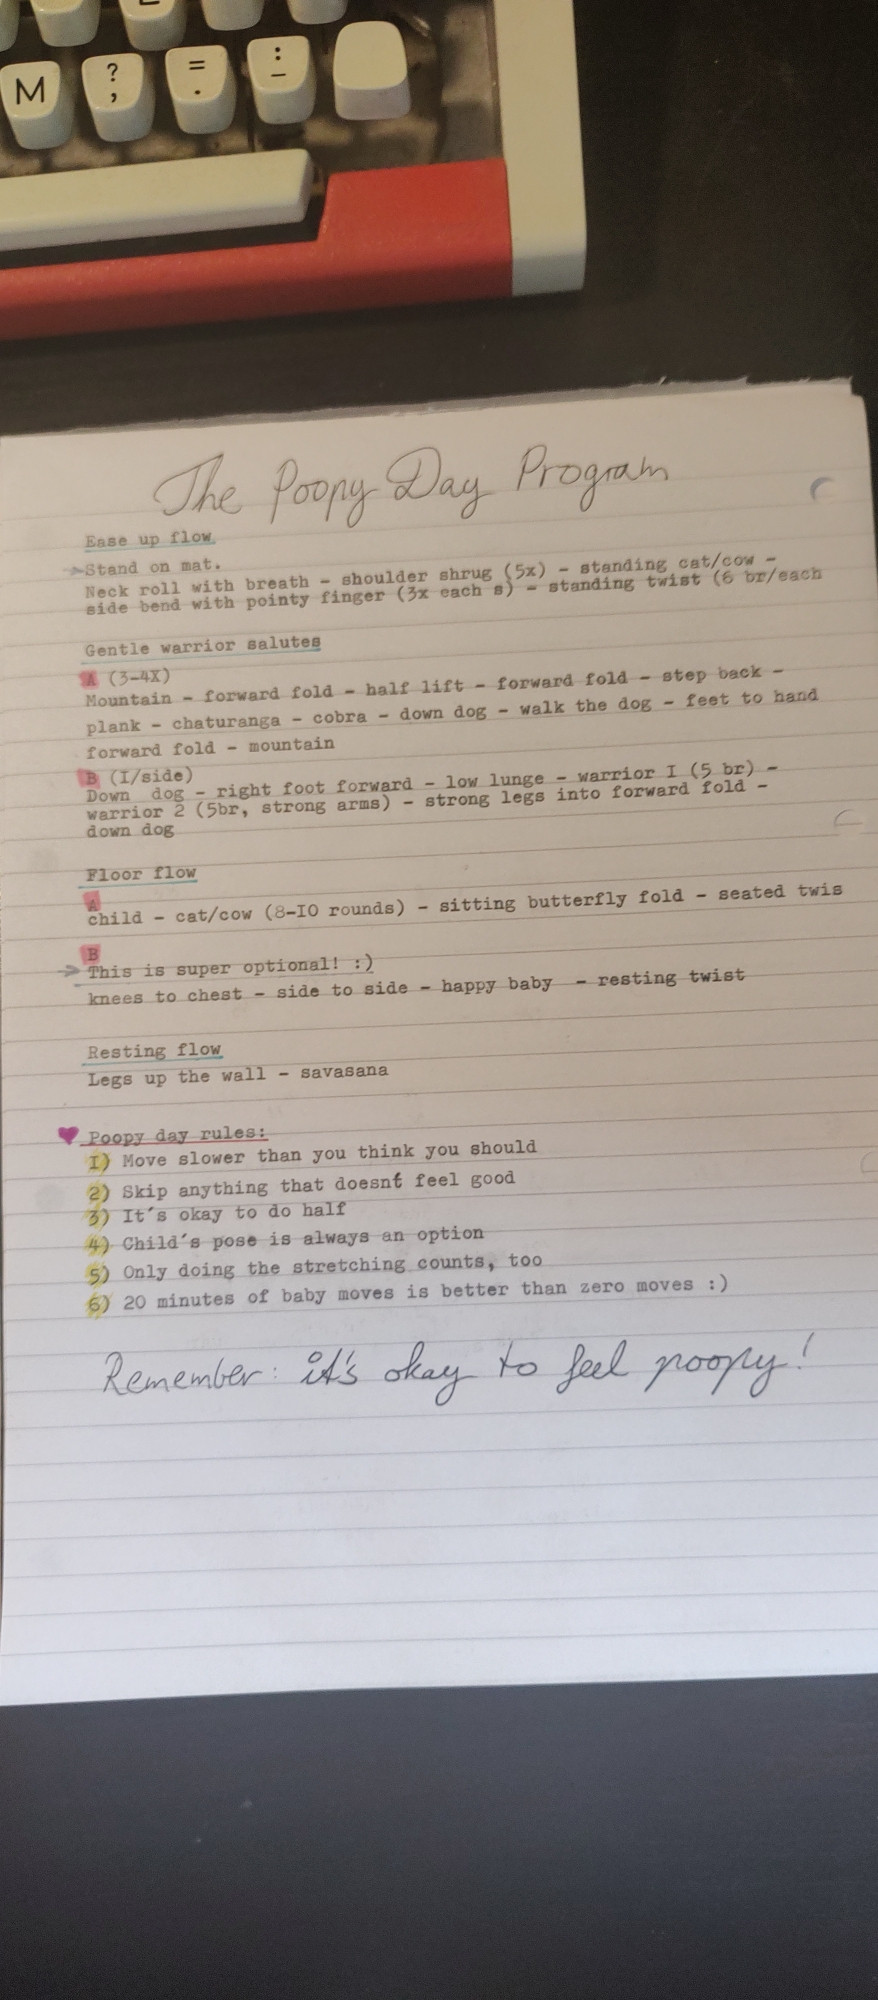 M
?
,
=
.
:
_
The Poopy Day Program
Ease up flow
Stand on mat.
Neck roll with breath - shoulder shrug (5x) - standing cat/cow -
side bend with pointy finger (3x each s) - standing twist (6 br/each
Gentle warrior salutes
A (3-4X)
Mountain - forward fold - half lift - forward fold - step back -
plank - chaturanga - cobra - down dog - walk the dog - feet to hand
forward fold - mountain
B (I/side)
Down dog - right foot forward - low lunge - warrior I (5 br) -
warrior 2 (5br, strong arms) - strong legs into forward fold -
down dog
Floor flow
A
child - cat/cow (8-IO rounds) - sitting butterfly fold - seated twis
B
This is super optional! :)
knees to chest - side to side - happy baby - resting twist
Resting flow
Legs up the wall - savasana
Poopy day rules:
I) Move slower than you think you should
2) Skip anything that doesnt feel good
3) It's okay to do half
4) Child's pose is always an option
5) Only doing the stretching counts, too
6) 20 minutes of baby moves is better than zero moves :)
Remember: it's okay to feel poopy!